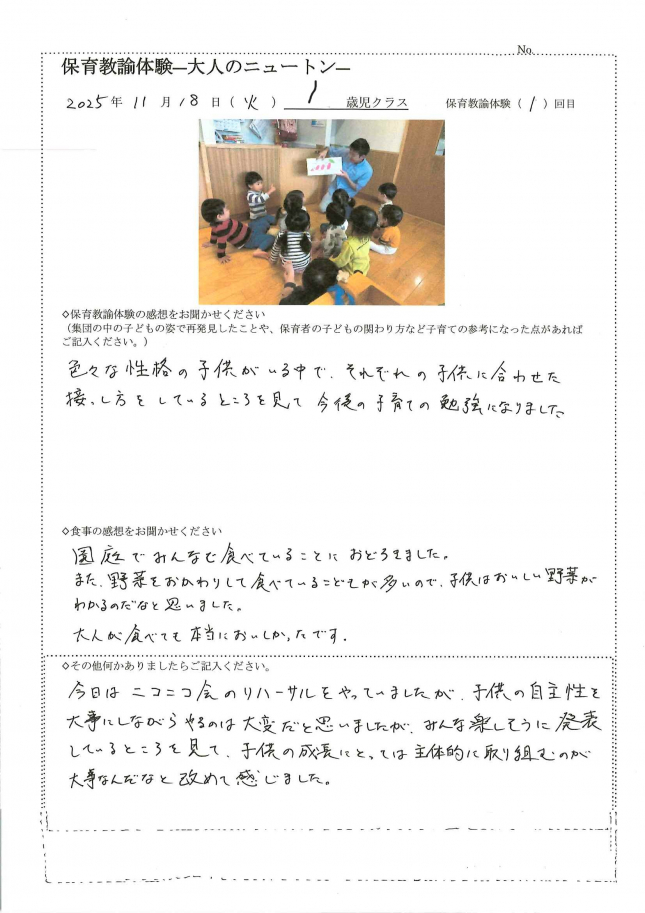 No.
保育教諭体験―大人のニュートン―
2025年 11月 18日（火） 1 歳児クラス 保育教諭体験（1）回目
◇保育教諭体験の感想をお聞かせください
（集団の中の子どもの姿で再発見したことや、保育者の子どもの関わり方など子育ての参考になった点があれば
ご記入ください。）
色々な性格の子供がいる中で、それぞれの子供に合わせた
接っし方をしているところを見て今後の子育ての勉強になりました、
◇食事の感想をお聞かせください
園庭でみんなで食べていることにおどろきました。
また、野菜をおかわりして食べているこどもが多いので、子供はおいしい野菜が
わかるのだなと思いました。
大人が食べても本当においしかったです.
◇その他何かありましたらご記入ください。
今日はニコニコ会のリハーサルをやっていましたが、子供の自主性を
大事にしながらやるのは大変だと思いましたが、みんな楽しそうに発表
しているところを見て、子供の成長にとっては主体的に取り組むのが
大事なんだなと改めて感じました。